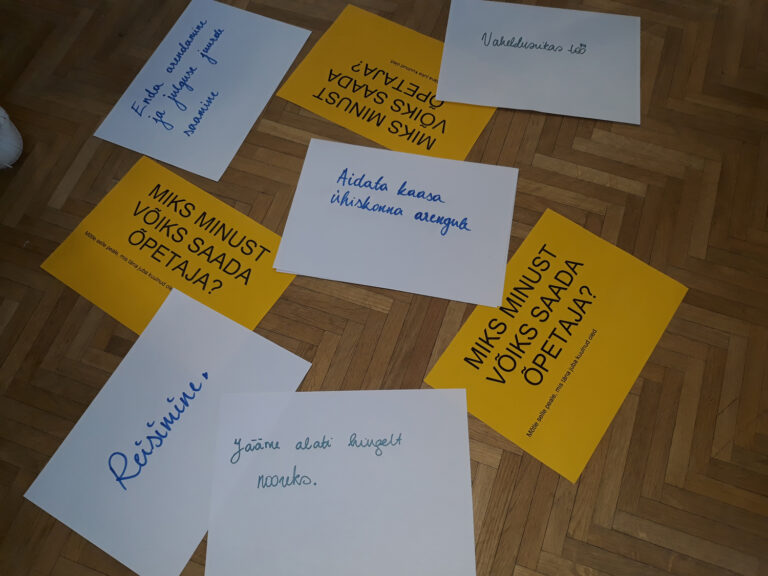 Enda arendamine
ja julguse juurde
saamine
MIKS MINUST
VÕIKS SAADA
ÕPETAJA?
täna juba kuulnud oled
Vaheldusrikas töö
MIKS MINUST
VÕIKS SAADA
ÕPETAJA?
Mõtle selle peale, mis täna juba kuulnud oled
Aidata kaasa
ühiskonna arengule
MIKS MINUST
VÕIKS SAADA
ÕPETAJA?
Mõtle selle peale, mis täna juba kuulnud oled
Reisimine.
Jääme alati hingelt
nooreks.